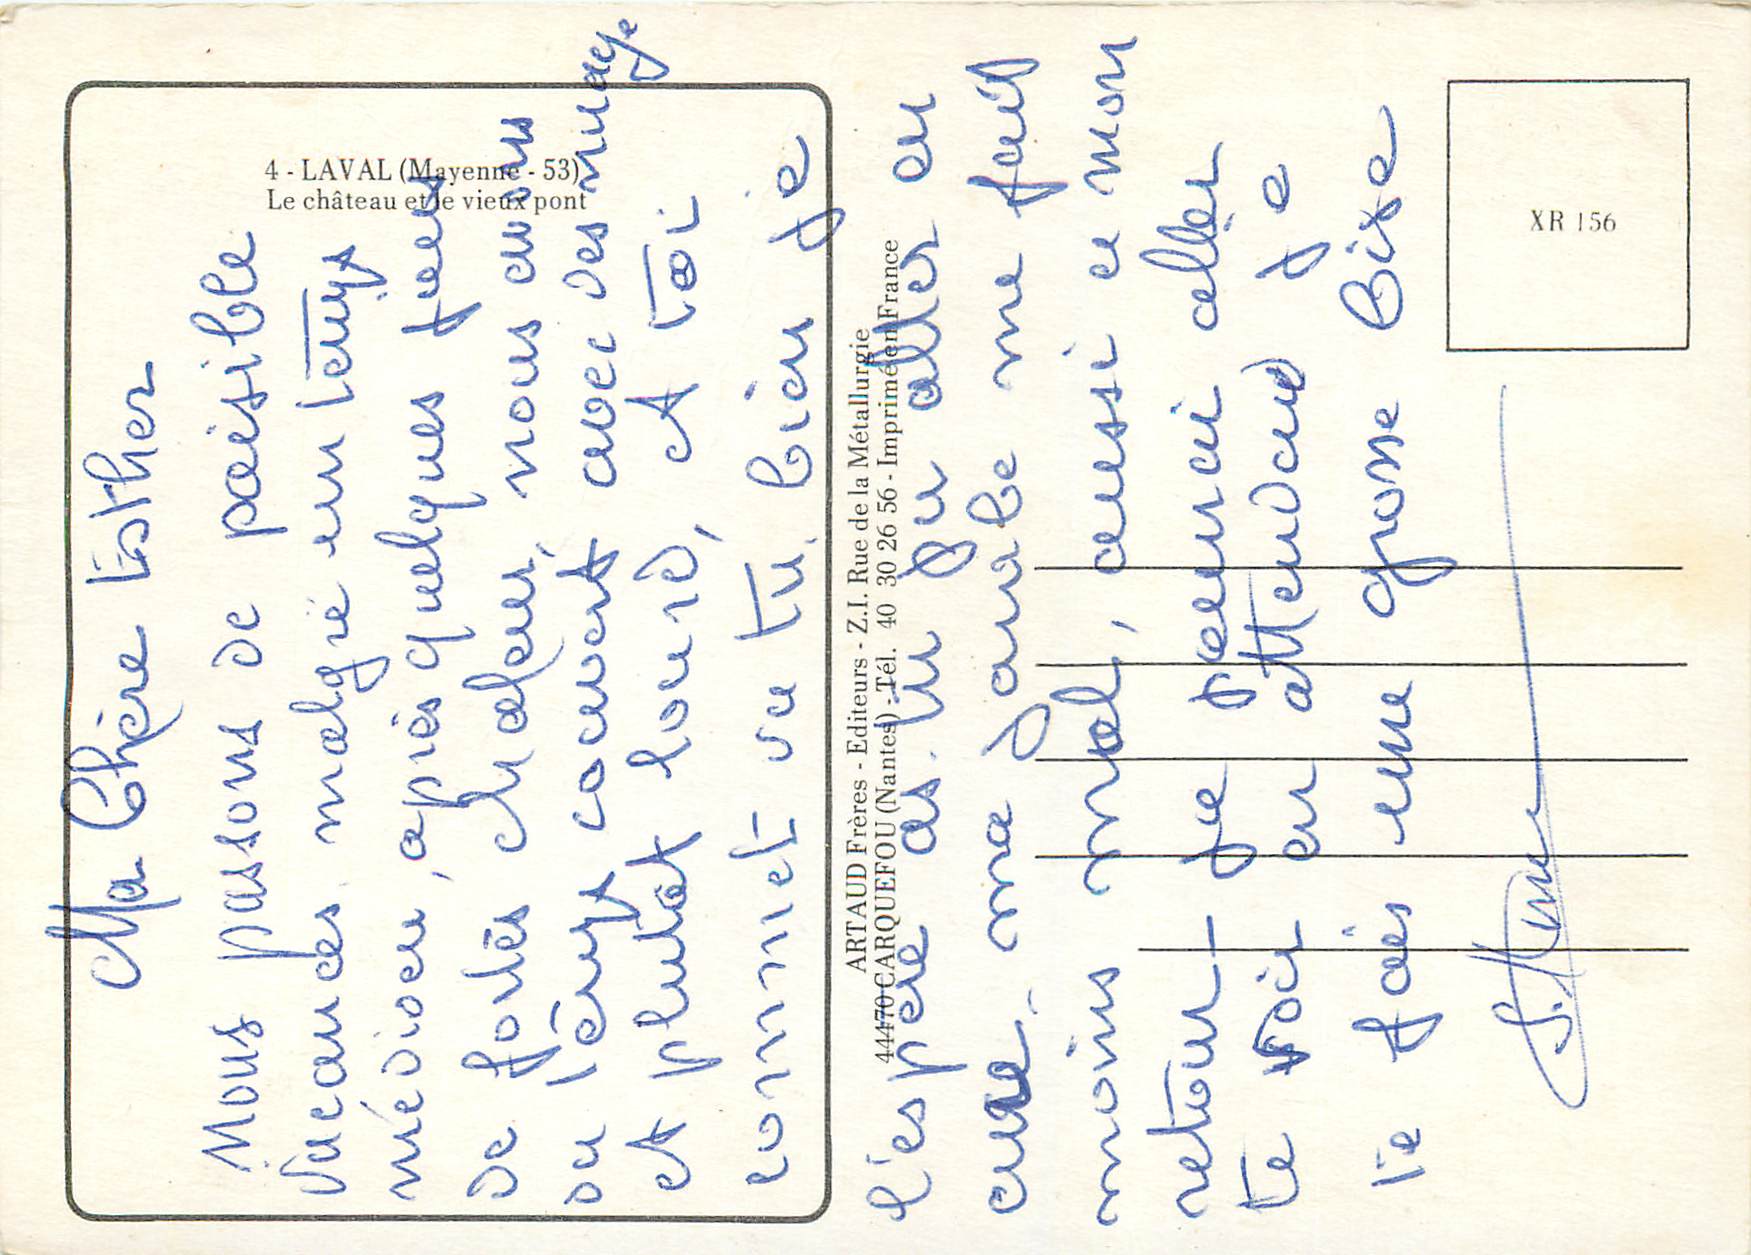 4 - LAVAL (Mayenne - 53)
Le château et le vieux pont
ARTAUD Frères - Editeurs - Z.I. Rue de la Métallurgie
44470 CARQUEFOU (Nantes) - Tél. 40 30 26 56 - Imprimé en France
XR 156
Ma Chère Esther
Nous passons de paisible
vacances malgré un temps
médiocre, après quelques jours
de fortes chaleur, nous avons
du temps couvert avec des nuage
et plutôt lourd, et toi
comment va tu, bien je
l'espère as tu pu aller en
cure, ma jambe me fait
moins mal, aussi a mon
retour je pourai aller
te voir en attendant je
te fais une grosse bise